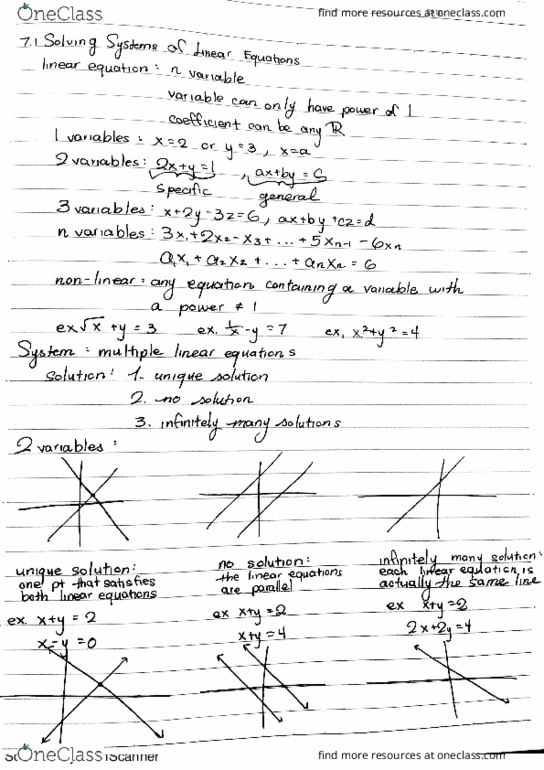 OneClass
find more resources at oneclass.com
7.1 Solving Systems of Linear Equations
linear equation: n variable
variable can only have power of 1
coefficient can be any ℝ
1 variables: x=2 or y=3, x=a
2 variables: 2x+y=1, ax+by=c
specific general
3 variables: x+2y-3z=6, ax+by+cz=d
n variables: 3x₁+2x₂-x₃+...+5xₙ₋₁-6xₙ
a₁x₁+a₂x₂+...+aₙxₙ=6
non-linear: any equation containing a variable with
a power ≠ 1
ex √x+y=3 ex. 1/x-y=7 ex. x²+y²=4
System: multiple linear equations
solution: 1. unique solution
2. no solution
3. infinitely many solutions
2 variables:
unique solution:
one pt that satisfies
both linear equations
ex. x+y=2
x-y=0
no solution:
the linear equations
are parallel
ex x+y=2
x+y=4
infinitely many solution:
each linear equation is
actually the same line
ex x+y=2
2x+2y=4
OneClass
Scanner
find more resources at oneclass.com